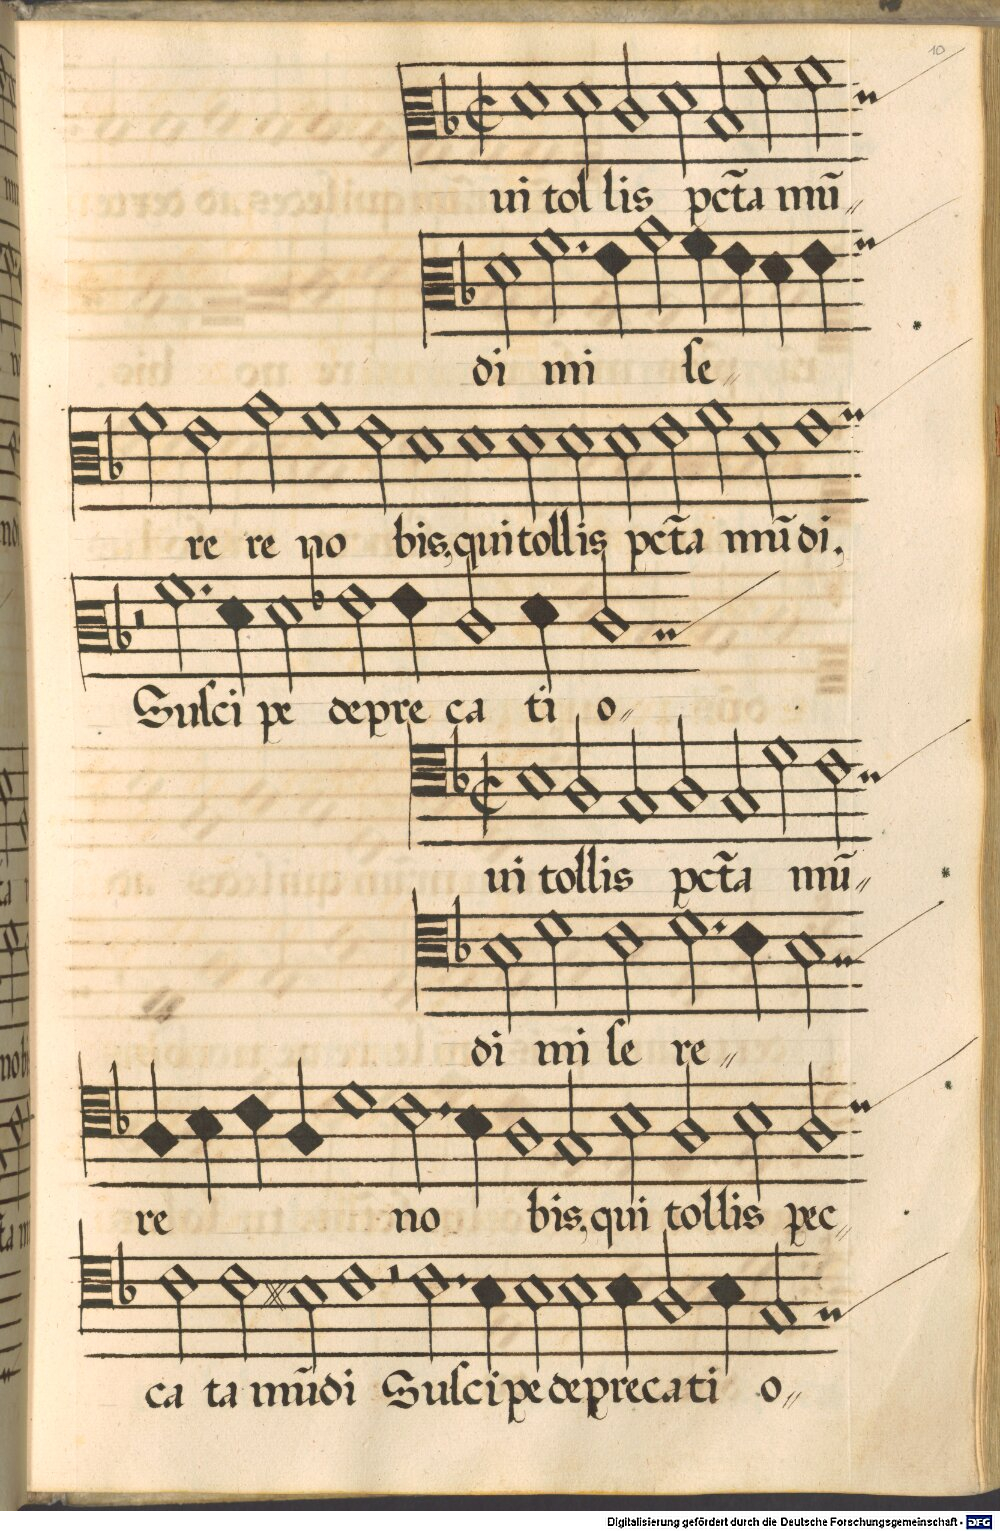 10
ui tol lis pct̄a mū
di mi se
re re no bis, qui tollis pct̄a mūdi,
Susci pe depre ca ti o
ui tollis pct̄a mū
di mi se re
re no bis, qui tollis pec
ca ta mūdi Suscipe deprecati o
Digitalisierung gefördert durch die Deutsche Forschungsgemeinschaft - DFG